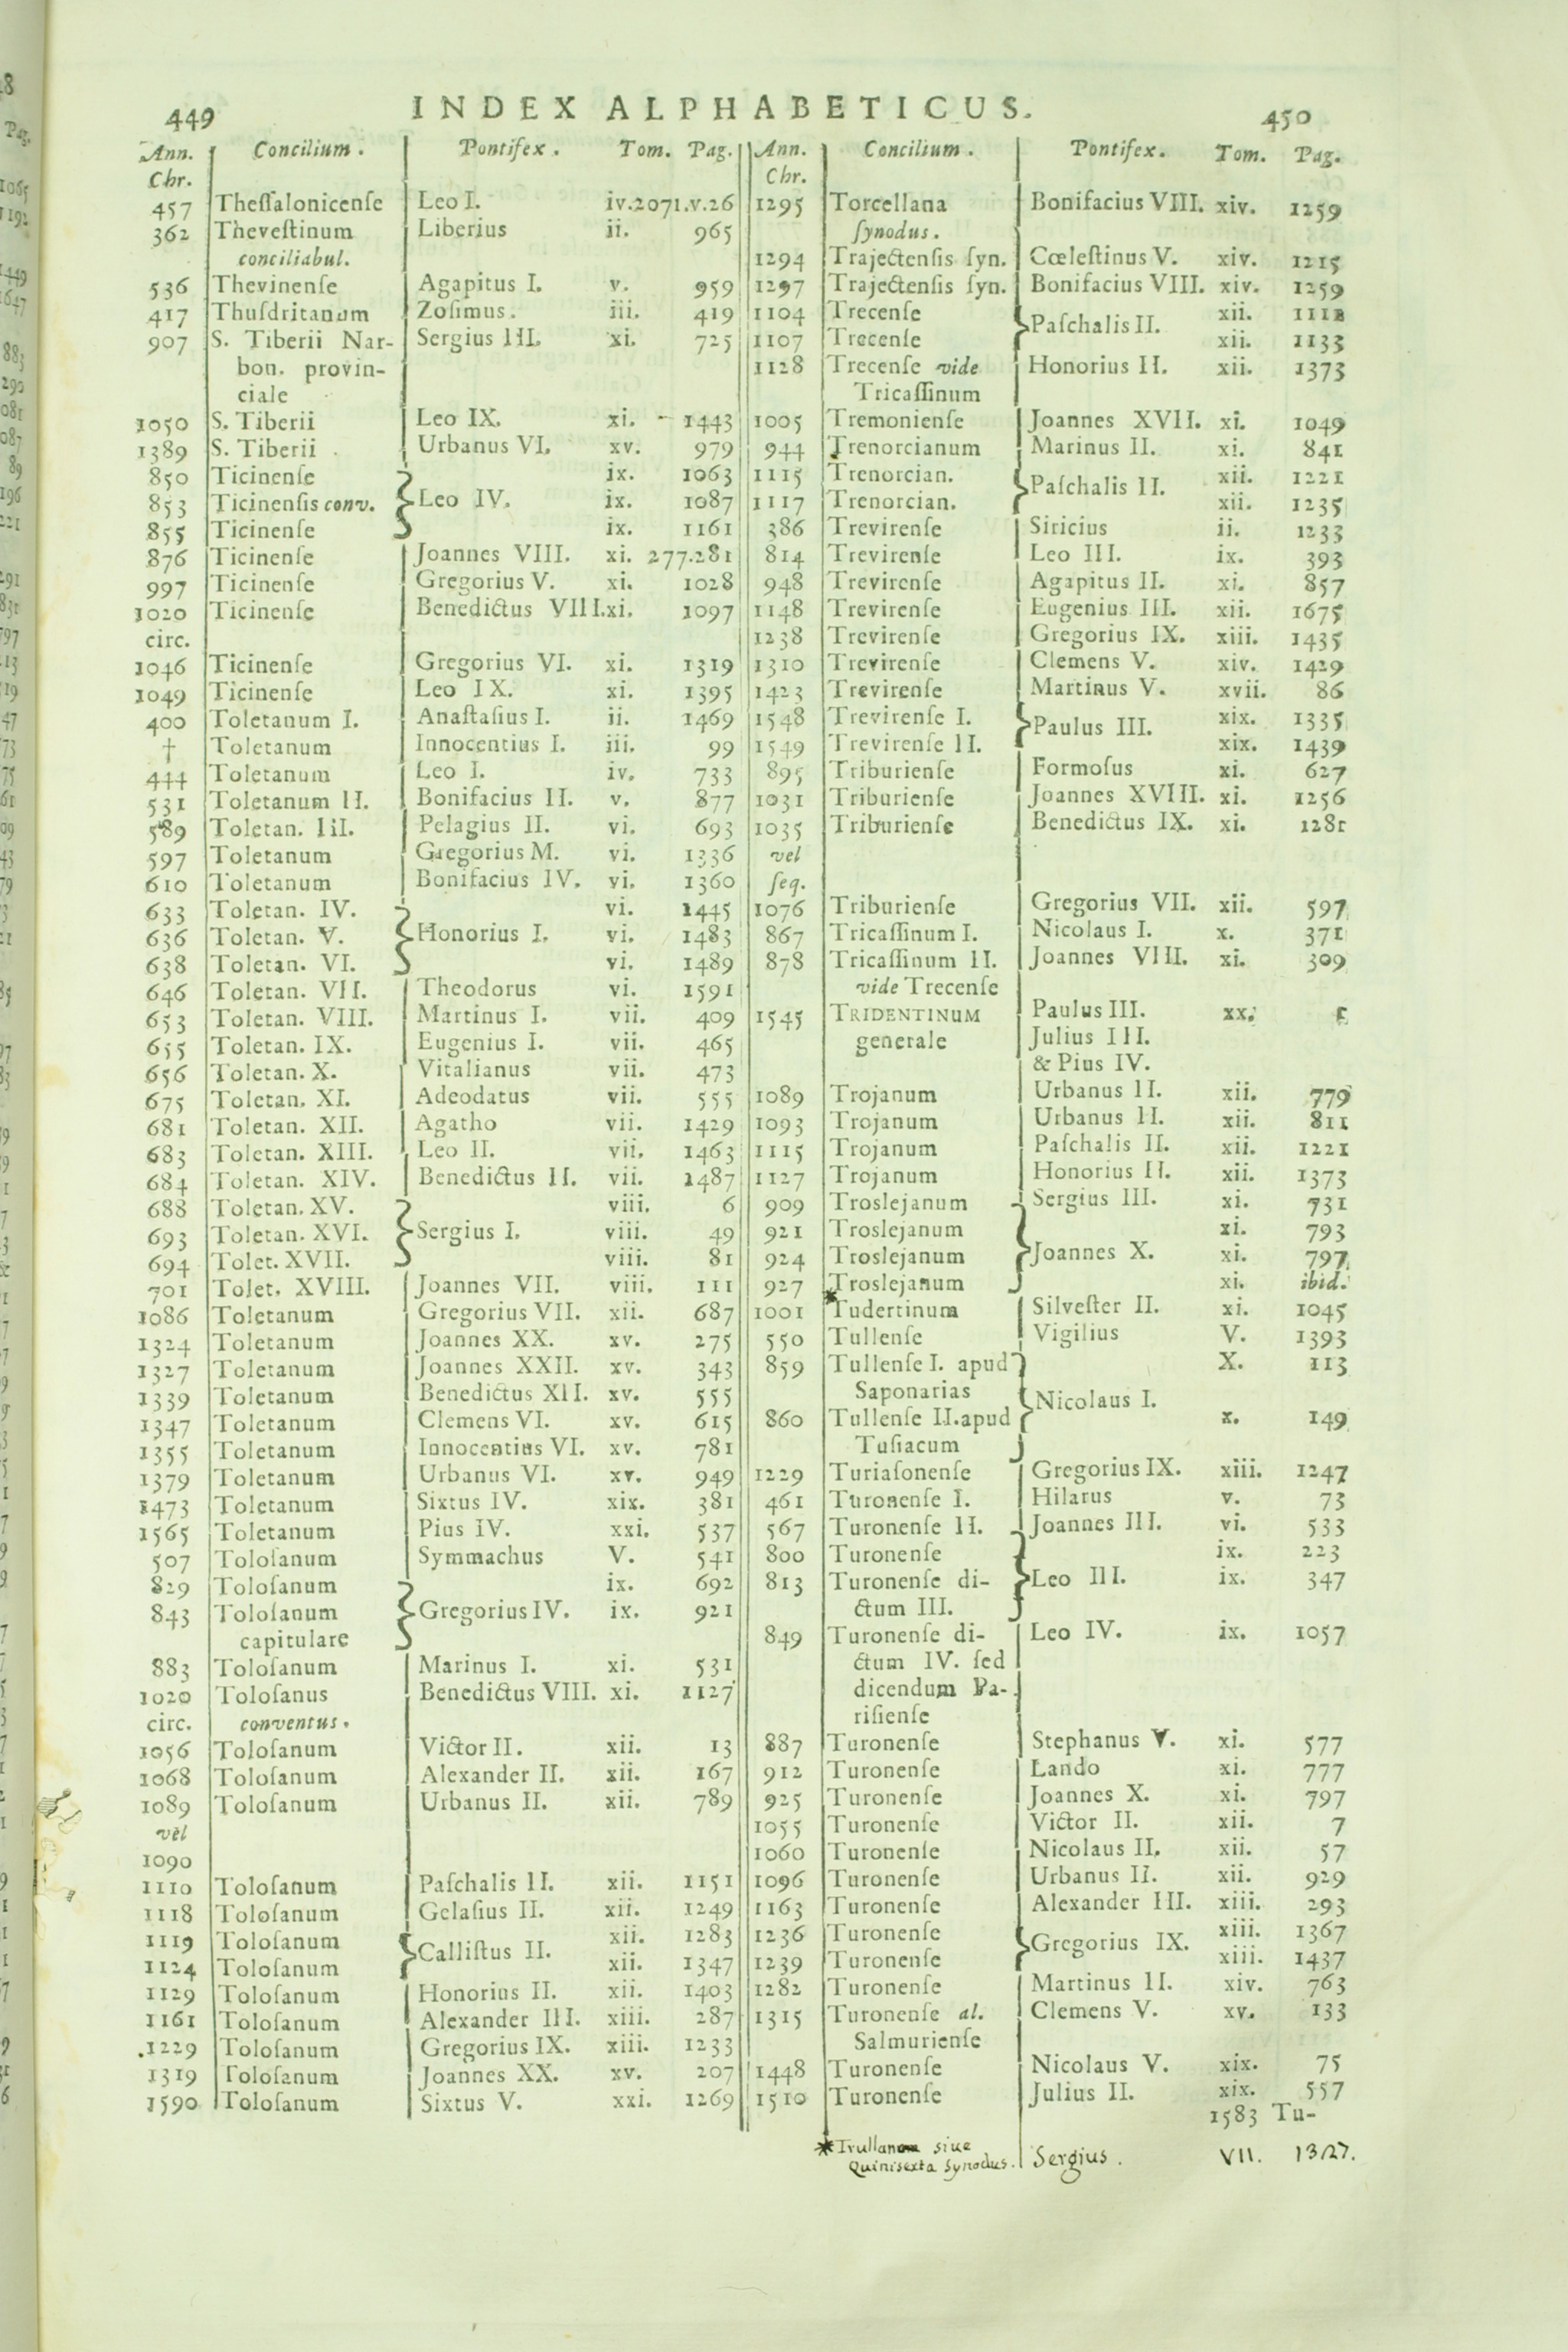 449 INDEX ALPHABETICUS. 450
Ann. Concilium. Pontifex. Tom. Pag.
Chr.
457 Theſſalonicenſe Leo I. iv.2071.v.26
362 Theveſtinum Liberius ii. 965
conciliabul.
536 Thevinenſe Agapitus I. v. 959
417 Thuſdritanum Zoſimus. iii. 419
907 S. Tiberii Nar- Sergius III. xi. 725
bon. provin-
ciale
1050 S. Tiberii Leo IX. xi. 1443
1389 S. Tiberii Urbanus VI. xv. 979
850 Ticinenſe ix. 1063
853 Ticinenſis conv. Leo IV. ix. 1087
855 Ticinenſe ix. 1161
876 Ticinenſe Joannes VIII. xi. 277.281
997 Ticinenſe Gregorius V. xi. 1028
1020 Ticinenſe Benedictus VIII.xi. 1097
circ.
1046 Ticinenſe Gregorius VI. xi. 1319
1049 Ticinenſe Leo IX. xi. 1395
400 Toletanum I. Anaſtaſius I. ii. 1469
† Toletanum Innocentius I. iii. 99
444 Toletanum Leo I. iv. 733
531 Toletanum II. Bonifacius II. v. 877
589 Toletan. III. Pelagius II. vi. 693
597 Toletanum Gregorius M. vi. 1336
610 Toletanum Bonifacius IV. vi. 1360
633 Toletan. IV. vi. 1445
636 Toletan. V. Honorius I. vi. 1483
638 Toletan. VI. vi. 1489
646 Toletan. VII. Theodorus vi. 1591
653 Toletan. VIII. Martinus I. vii. 409
655 Toletan. IX. Eugenius I. vii. 465
656 Toletan. X. Vitalianus vii. 473
675 Toletan. XI. Adeodatus vii. 555
681 Toletan. XII. Agatho vii. 1429
683 Toletan. XIII. Leo II. vii. 1463
684 Toletan. XIV. Benedictus II. vii. 1487
688 Toletan. XV. viii. 6
693 Toletan. XVI. Sergius I. viii. 49
694 Tolet. XVII. viii. 81
701 Tolet. XVIII. Joannes VII. viii. 111
1086 Toletanum Gregorius VII. xii. 687
1324 Toletanum Joannes XX. xv. 275
1327 Toletanum Joannes XXII. xv. 343
1339 Toletanum Benedictus XII. xv. 555
1347 Toletanum Clemens VI. xv. 615
1355 Toletanum Innocentius VI. xv. 781
1379 Toletanum Urbanus VI. xv. 949
1473 Toletanum Sixtus IV. xix. 381
1565 Toletanum Pius IV. xxi. 537
507 Toloſanum Symmachus V. 541
829 Toloſanum ix. 692
843 Toloſanum Gregorius IV. ix. 921
capitulare
883 Toloſanum Marinus I. xi. 531
1020 Toloſanus Benedictus VIII. xi. 1127
circ. conventus.
1056 Toloſanum Victor II. xii. 13
1068 Toloſanum Alexander II. xii. 167
1089 Toloſanum Urbanus II. xii. 789
vel
1090
1110 Toloſanum Paſchalis II. xii. 1151
1118 Toloſanum Gelaſius II. xii. 1249
1119 Toloſanum xii. 1283
Calliſtus II.
1124 Toloſanum xii. 1347
1129 Toloſanum Honorius II. xii. 1403
1161 Toloſanum Alexander III. xiii. 287
.1229 Toloſanum Gregorius IX. xiii. 1233
1319 Toloſanum Joannes XX. xv. 207
1590 Toloſanum Sixtus V. xxi. 1269
Ann. Concilium. Pontifex. Tom. Pag.
Chr.
1295 Torcellana Bonifacius VIII. xiv. 1259
ſynodus.
1294 Trajectenſis ſyn. Cœleſtinus V. xiv. 1215
1297 Trajectenſis ſyn. Bonifacius VIII. xiv. 1259
1104 Trecenſe xii. 1118
Paſchalis II.
1107 Trecenſe xii. 1133
1128 Trecenſe vide Honorius II. xii. 1373
Tricaſſinum
1005 Tremonienſe Joannes XVII. xi. 1049
944 Trenorcianum Marinus II. xi. 841
1115 Trenorcian. xii. 1221
Paſchalis II.
1117 Trenorcian. xii. 1235
386 Trevirenſe Siricius ii. 1233
814 Trevirenſe Leo III. ix. 393
948 Trevirenſe Agapitus II. xi. 857
1148 Trevirenſe Eugenius III. xii. 1675
1238 Trevirenſe Gregorius IX. xiii. 1435
1310 Trevirenſe Clemens V. xiv. 1429
1423 Trevirenſe Martinus V. xvii. 86
1548 Trevirenſe I. xix. 1335
Paulus III.
1549 Trevirenſe II. xix. 1439
895 Triburienſe Formoſus xi. 627
1031 Triburienſe Joannes XVIII. xi. 1256
1035 Triburienſe Benedictus IX. xi. 1281
vel
ſeq.
1076 Triburienſe Gregorius VII. xii. 597
867 Tricaſſinum I. Nicolaus I. x. 371
878 Tricaſſinum II. Joannes VIII. xi. 309
vide Trecenſe
1545 TRIDENTINUM Paulus III. xx.
generale Julius III.
& Pius IV.
1089 Trojanum Urbanus II. xii. 779
1093 Trojanum Urbanus II. xii. 811
1115 Trojanum Paſchalis II. xii. 1221
1127 Trojanum Honorius II. xii. 1373
909 Troslejanum Sergius III. xi. 731
921 Troslejanum xi. 793
924 Troslejanum Joannes X. xi. 797
927 Troslejanum xi. ibid.
1001 *Tudertinum Silveſter II. xi. 1045
550 Tullenſe Vigilius V. 1393
859 Tullenſe I. apud X. 113
Saponarias Nicolaus I.
860 Tullenſe II.apud x. 149
Tuſiacum
1229 Turiaſonenſe Gregorius IX. xiii. 1247
461 Turonenſe I. Hilarus v. 73
567 Turonenſe II. Joannes III. vi. 533
800 Turonenſe ix. 223
813 Turonenſe di- Leo III. ix. 347
ctum III.
849 Turonenſe di- Leo IV. ix. 1057
ctum IV. ſed
dicendum Pa-
riſienſe
887 Turonenſe Stephanus V. xi. 577
912 Turonenſe Lando xi. 777
925 Turonenſe Joannes X. xi. 797
1055 Turonenſe Victor II. xii. 7
1060 Turonenſe Nicolaus II. xii. 57
1096 Turonenſe Urbanus II. xii. 929
1163 Turonenſe Alexander III. xiii. 293
1236 Turonenſe xiii. 1367
Gregorius IX.
1239 Turonenſe xiii. 1437
1282 Turonenſe Martinus II. xiv. 763
1315 Turonenſe al. Clemens V. xv. 133
Salmurienſe
1448 Turonenſe Nicolaus V. xix. 75
1510 Turonenſe Julius II. xix. 557
1583 Tu-
*Trullana siue
Quinisexta Synodus. Sergius. VII. 1327.